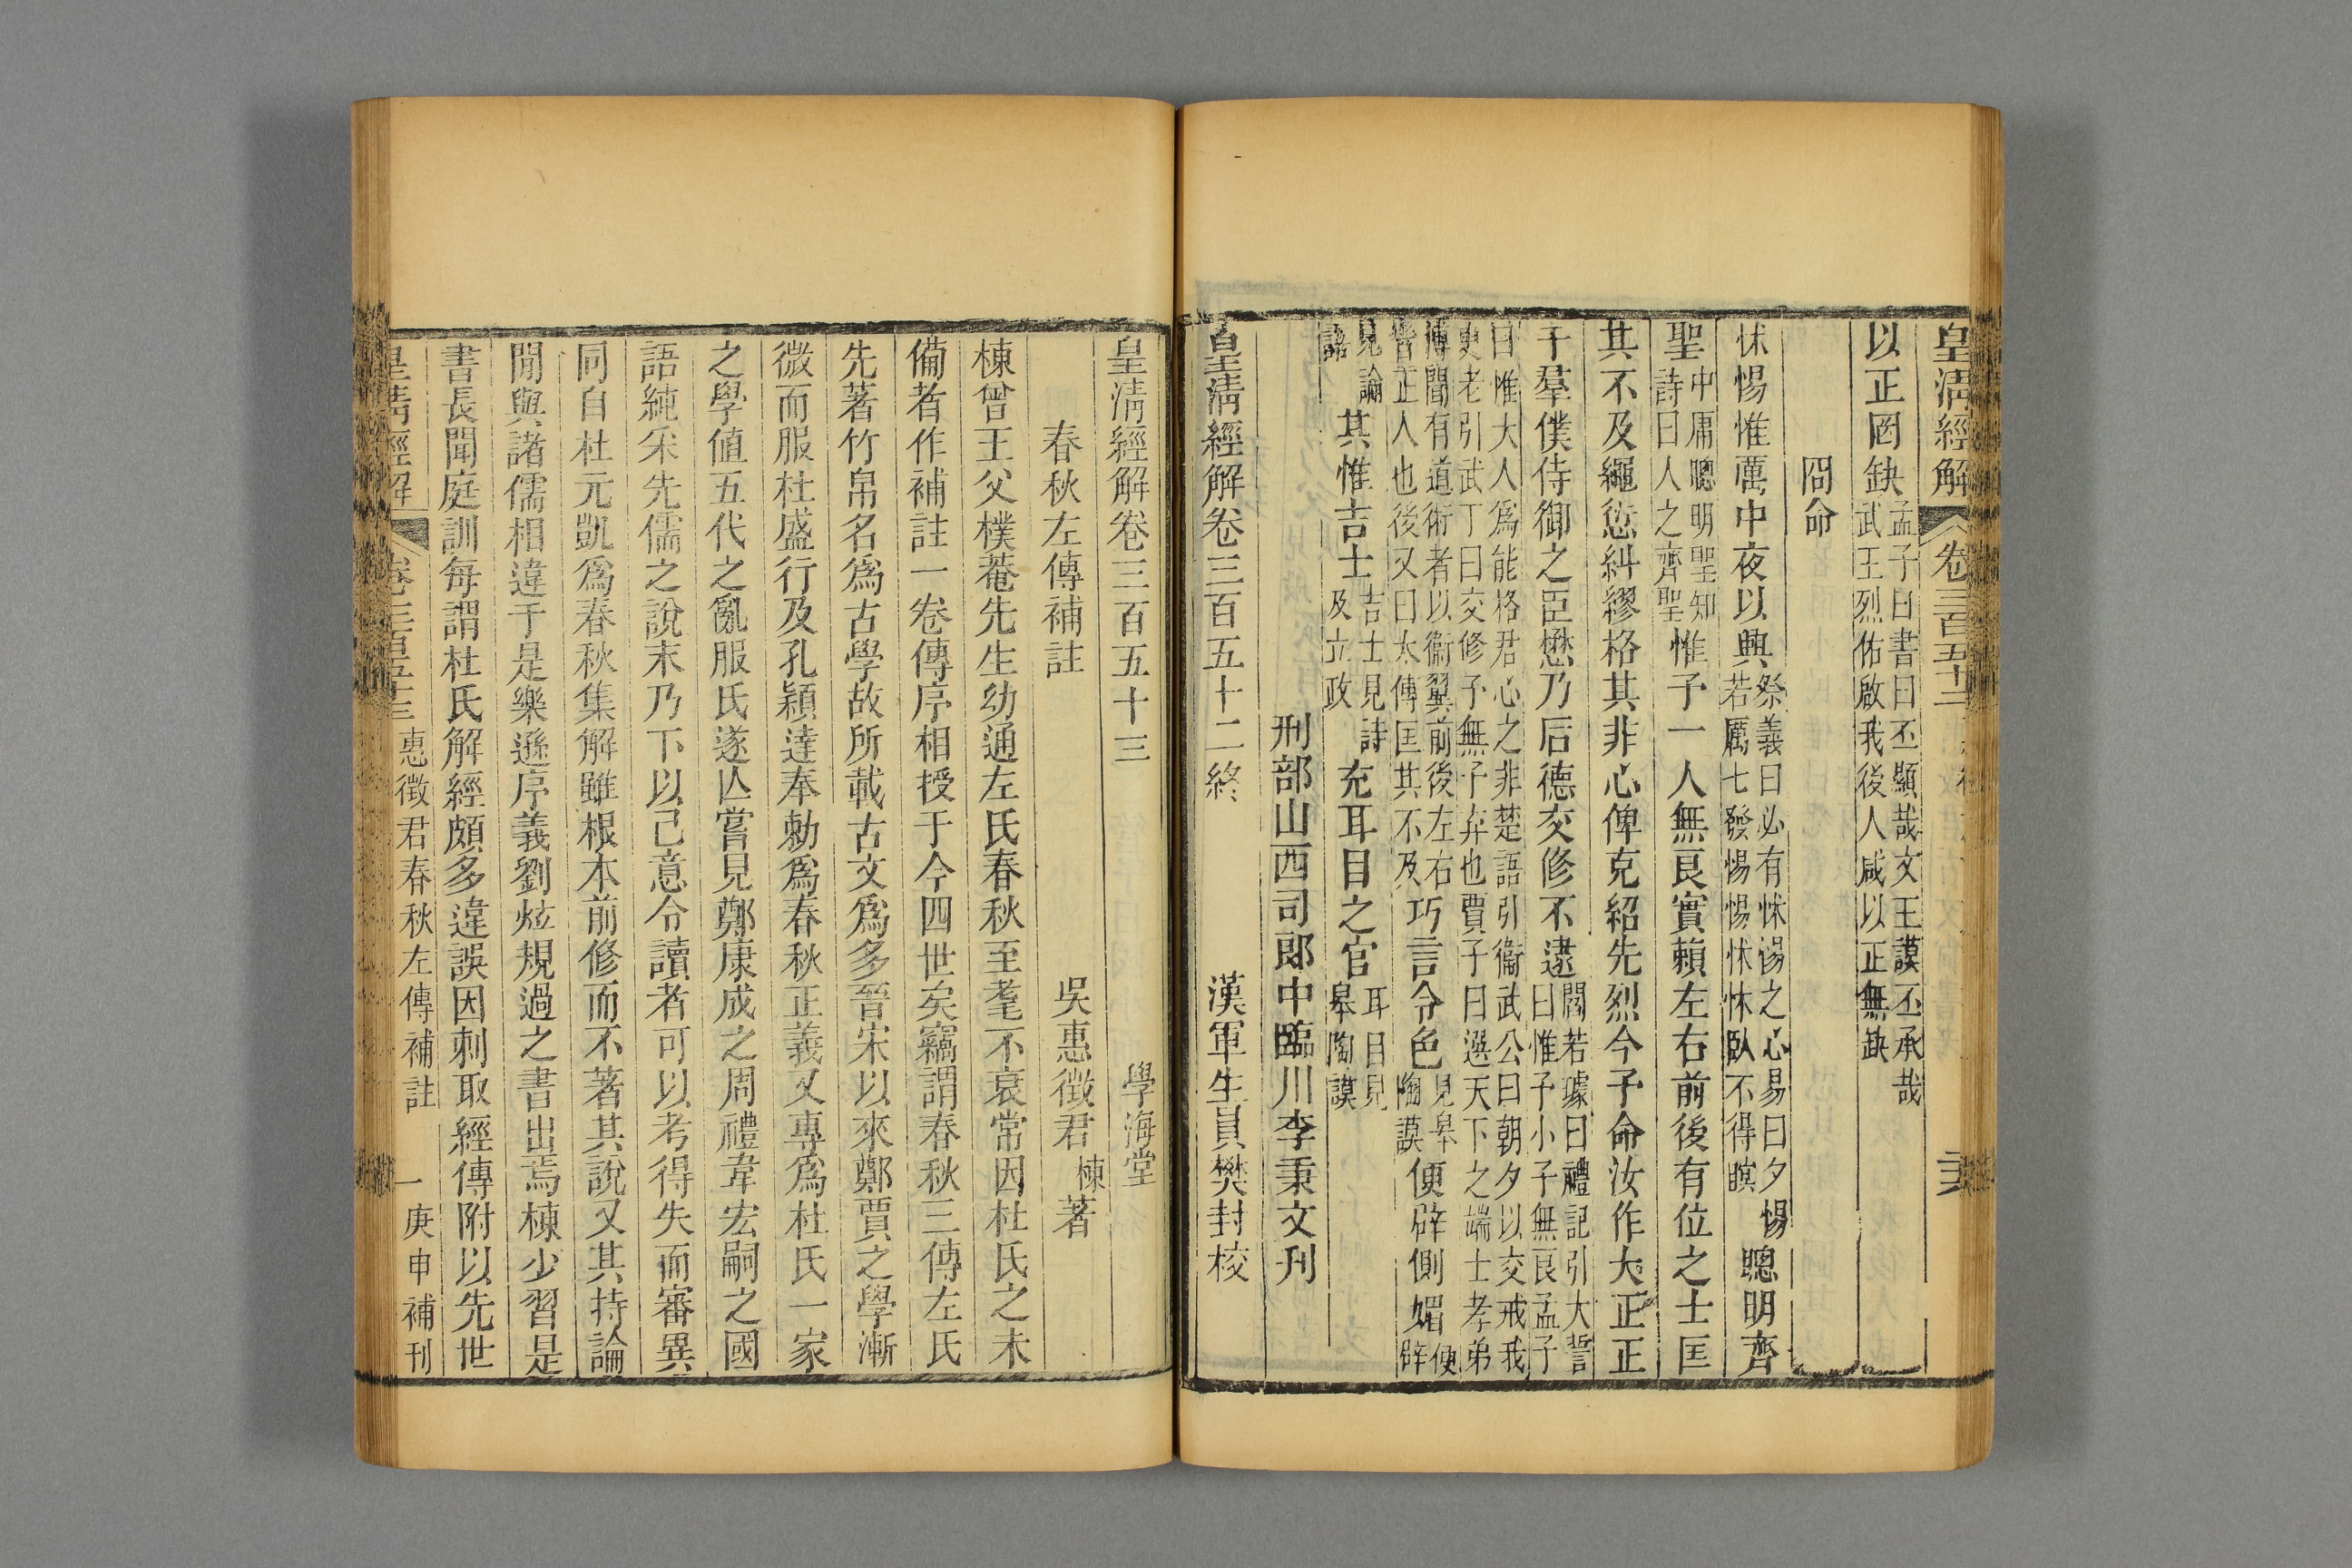 皇淸經解 卷三百五十二
以正罔缺孟子曰書曰丕顯哉文王謨丕承哉武王烈佑啟我後人咸以正無缺
冏命
怵惕惟厲中夜以興祭義曰必有怵惕之心易曰夕惕若厲七發惕惕怵怵臥不得瞑聰明齊
聖中庸聰明聖知詩曰人之齊聖惟予一人無良實賴左右前後有位之士匡
其不及繩愆糾繆格其非心俾克紹先烈今予命汝作大正正
于羣僕侍御之臣懋乃后德交修不逮閻若璩曰禮記引大誓曰惟予小子無良孟子
曰惟大人爲能格君心之非楚語引衞武公曰朝夕以交戒我史老引武丁曰交修予無予弃也賈子曰選天下之端士孝弟
博聞有道術者以衞翼前後左右皆正人也後又曰太傳匡其不及巧言令色見皋陶謨便辟側媚便辟
見論語其惟吉士吉士見詩及立政充耳目之官耳目見皋陶謨
刑部山西司郎中臨川李秉文刊
皇淸經解卷三百五十二終 漢軍生員樊封校
皇淸經解卷三百五十三 學海堂
春秋左傳補註 吳惠徵君棟著
棟曾王父樸菴先生幼通左氏春秋至耄不衰常因杜氏之未
備者作補註一卷傳序相授于今四世矣竊謂春秋三傳左氏
先著竹帛名爲古學故所載古文爲多晉宋以來鄭賈之學漸
微而服杜盛行及孔穎達奉勅爲春秋正義又專爲杜氏一家
之學値五代之亂服氏遂亾嘗見鄭康成之周禮韋宏嗣之國
語純采先儒之說末乃下以己意令讀者可以考得失而審異
同自杜元凱爲春秋集解雖根本前修而不著其說又其持論
閒與諸儒相違于是樂遜序義劉炫規過之書出焉棟少習是
書長聞庭訓每謂杜氏解經頗多違誤因刺取經傳附以先世
皇淸經解 卷三百五十三 惠徵君春秋左傳補註 一 庚申補刊